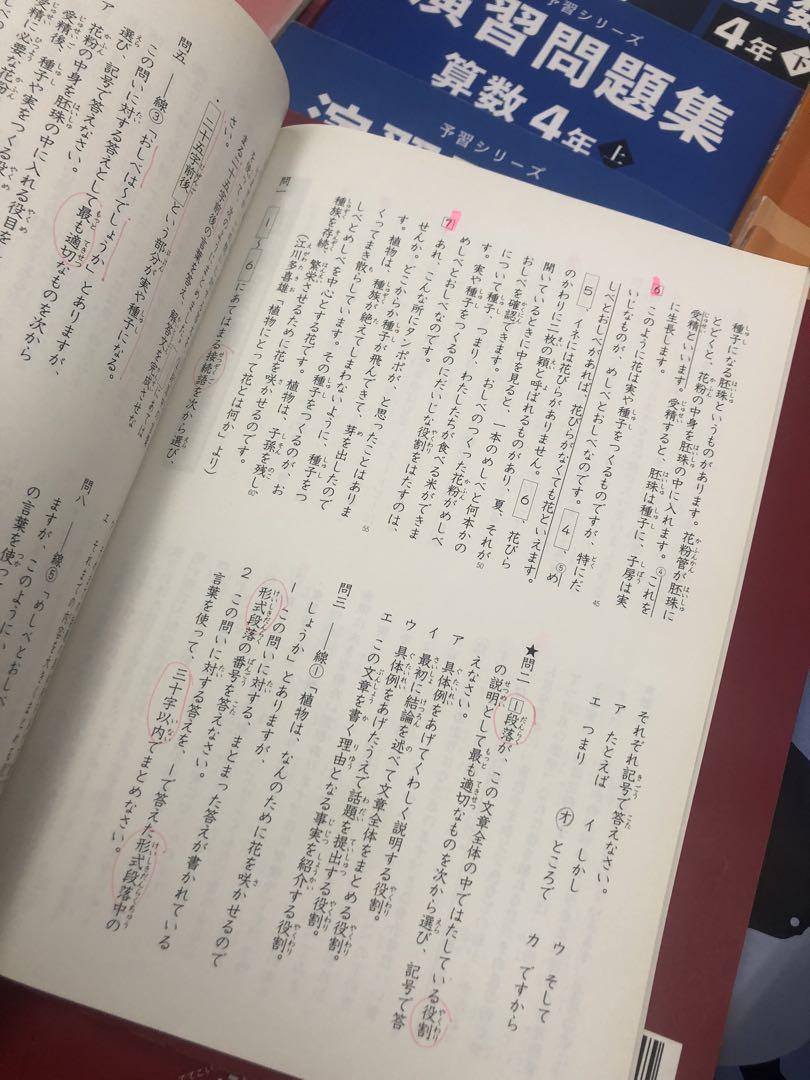 予習シリーズ
演習問題集
算数4年 上
予習シリーズ
4年 下
種子になる胚珠というものがあります。花粉管が胚珠に
とどくと、花粉の中身を胚珠の中に入れます。④これを
受精といいます。受精すると、胚珠は種子に、子房は実
に生長します。
6 このように花は実や種子をつくるものですが、特にだ
いじなものが、めしべとおしべなのです。 4 、⑤め
しべとおしべがあれば、花びらがなくても花といえます。
5 、イネには花びらがありません。 6 、花びら
のかわりに二枚の穎と呼ばれるものがあり、夏、それが
開いているときに中を見ると、一本のめしべと何本かの
おしべを確認できます。おしべのつくった花粉がめしべ
について種子、つまり、わたしたちが食べる米ができま
す。実や種子をつくるのにだいじな役割をはたすのは、
めしべとおしべなのです。
7 あれ、こんな所にタンポポが、と思ったことはありま
せんか。どこからか種子が飛んできて、芽を出したので
す。植物は、種族が絶えてしまわないように、種子をつ
くってまき散らしています。その種子をつくるのが、お
しべとめしべを中心とする花です。植物は、子孫を残し、
種族を存続、繁栄させるために花を咲かせるのです。
（江川多喜雄「植物にとって花とは何か」より）
45
50
55
60
問一 1 〜 6 にあてはまる接続語を次から選び、
それぞれ記号で答えなさい。
ア たとえば イ しかし ウ そして
エ つまり オ ところで カ ですから
★問二 1段落が、この文章全体の中ではたしている役割
の説明として最も適切なものを次から選び、記号で答
えなさい。
ア 具体例をあげてくわしく説明する役割。
イ 最初に結論を述べて文章全体をまとめる役割。
ウ 具体例をあげたうえで話題を提出する役割。
エ この文章を書く理由となる事実を紹介する役割。
問三 ――線①「植物は、なんのために花を咲かせるので
しょうか」とありますが、
1 この問いに対する、まとまった答えが書かれている
形式段落の番号を答えなさい。
2 この問いに対する答えを、1で答えた形式段落中の
言葉を使って、三十字以内でまとめなさい。
まる二十五字前後の言葉を答え、解答文を完成させな
さい。
・二十五字前後 という部分が実や種子になる。
問五 ――線③「おしべは〜でしょうか」とありますが、
この問いに対する答えとして最も適切なものを次から
選び、記号で答えなさい。
ア 花粉の中身を胚珠の中に入れる役目を
受精後、種子や実をつくる役め
受精に必要な花粉
問八 ――線⑤「めしべとおしべ
ますが、このようにいい
の言葉を使っ